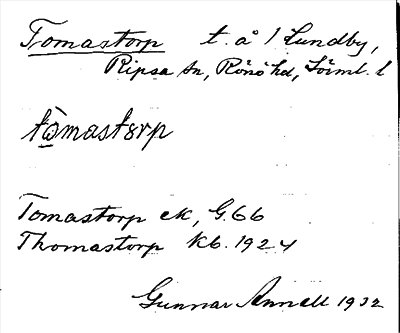 Tomastorp t. å / Lundby,
Ripsa sn, Rönö hd, Sörml. l
tòmastorp
Tomastorp ek, G.66
Thomastorp kb. 1924
Gunnar Annell 1932